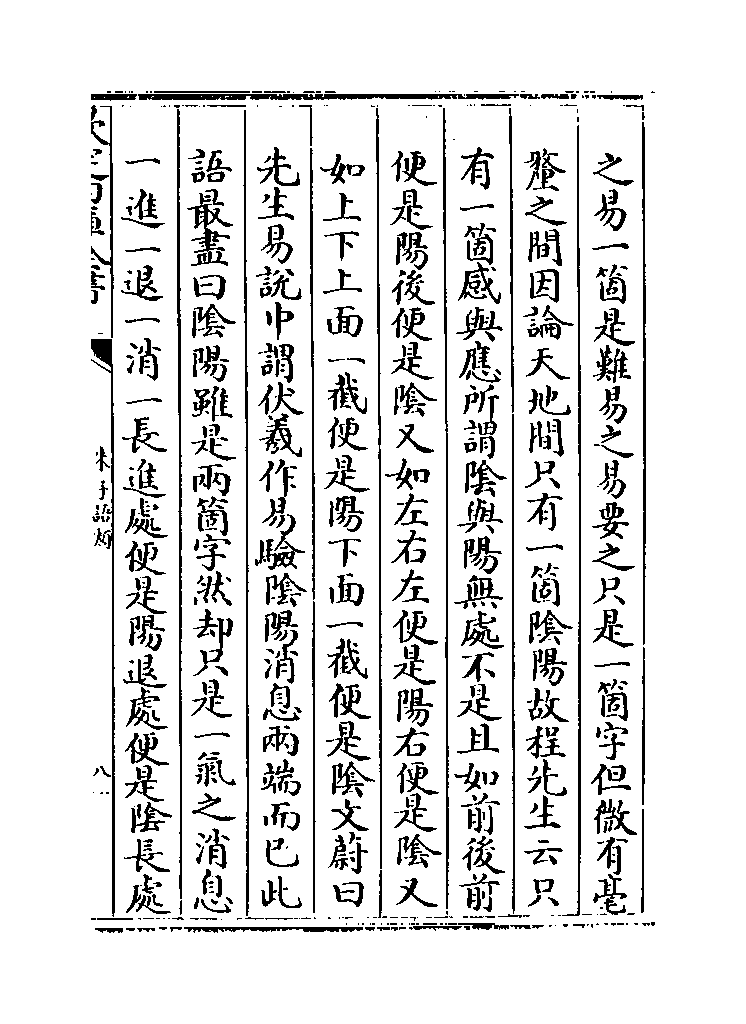 之易一箇是難易之易要之只是一箇字但微有毫
釐之間因論天地間只有一箇陰陽故程先生云只
有一箇感與應所謂陰與陽無處不是且如前後前
便是陽後便是陰又如左右左便是陽右便是陰又
如上下上面一截便是陽下面一截便是陰文蔚曰
先生易說中謂伏羲作易驗陰陽消息兩端而已此
語最盡曰陰陽雖是兩箇字然却只是一氣之消息
一進一退一消一長進處便是陽退處便是陰長處
欽定四庫全書
朱子語類
八